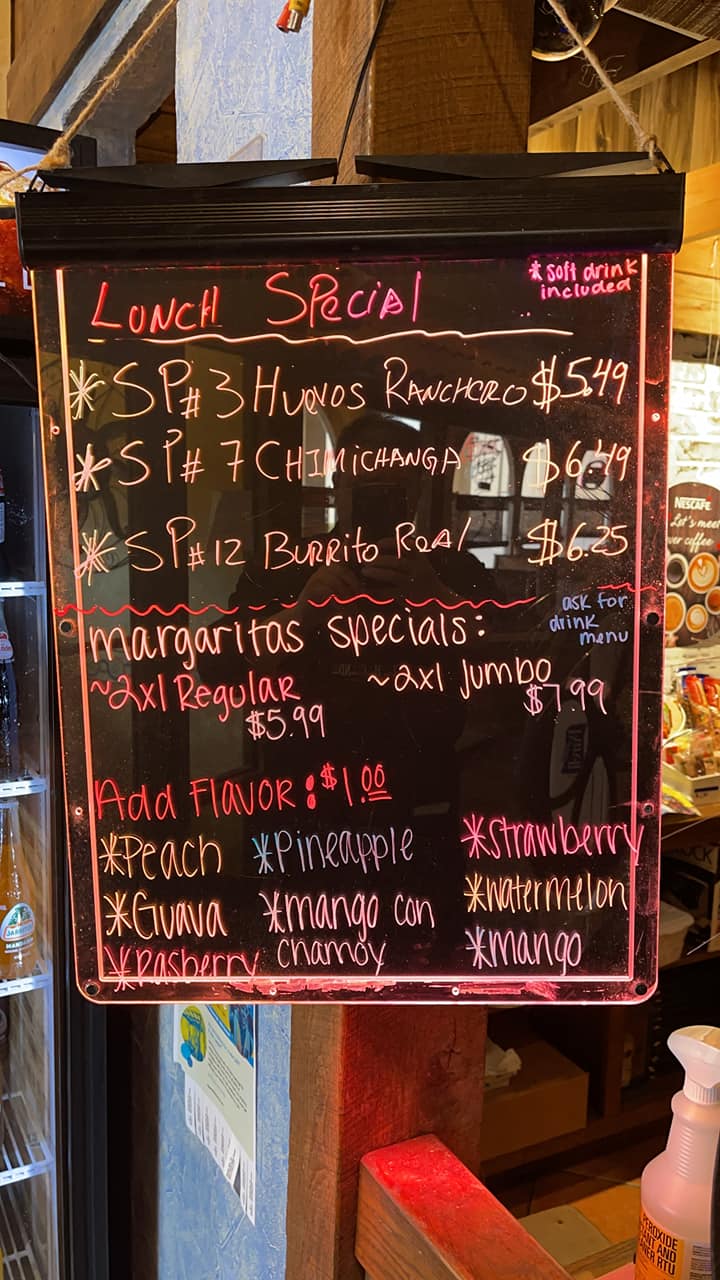 LUNCH SPecial
* soft drink
included
* SP# 3 Huevos RANCHERO $5.49
* SP# 7 CHIMICHANGA $6.49
* SP# 12 BURRito ReAl $6.25
ask for
drink
menu
margaritas specials:
~2x1 Regular
$5.99
~2x1 Jumbo
$7.99
Add FLAVOR: $1.00
*Peach *Pineapple *Strawberry
*Guava *mango con chamoy *Watermelon
*Rasberry *mango
NESCAFE
Let's meet
over coffee